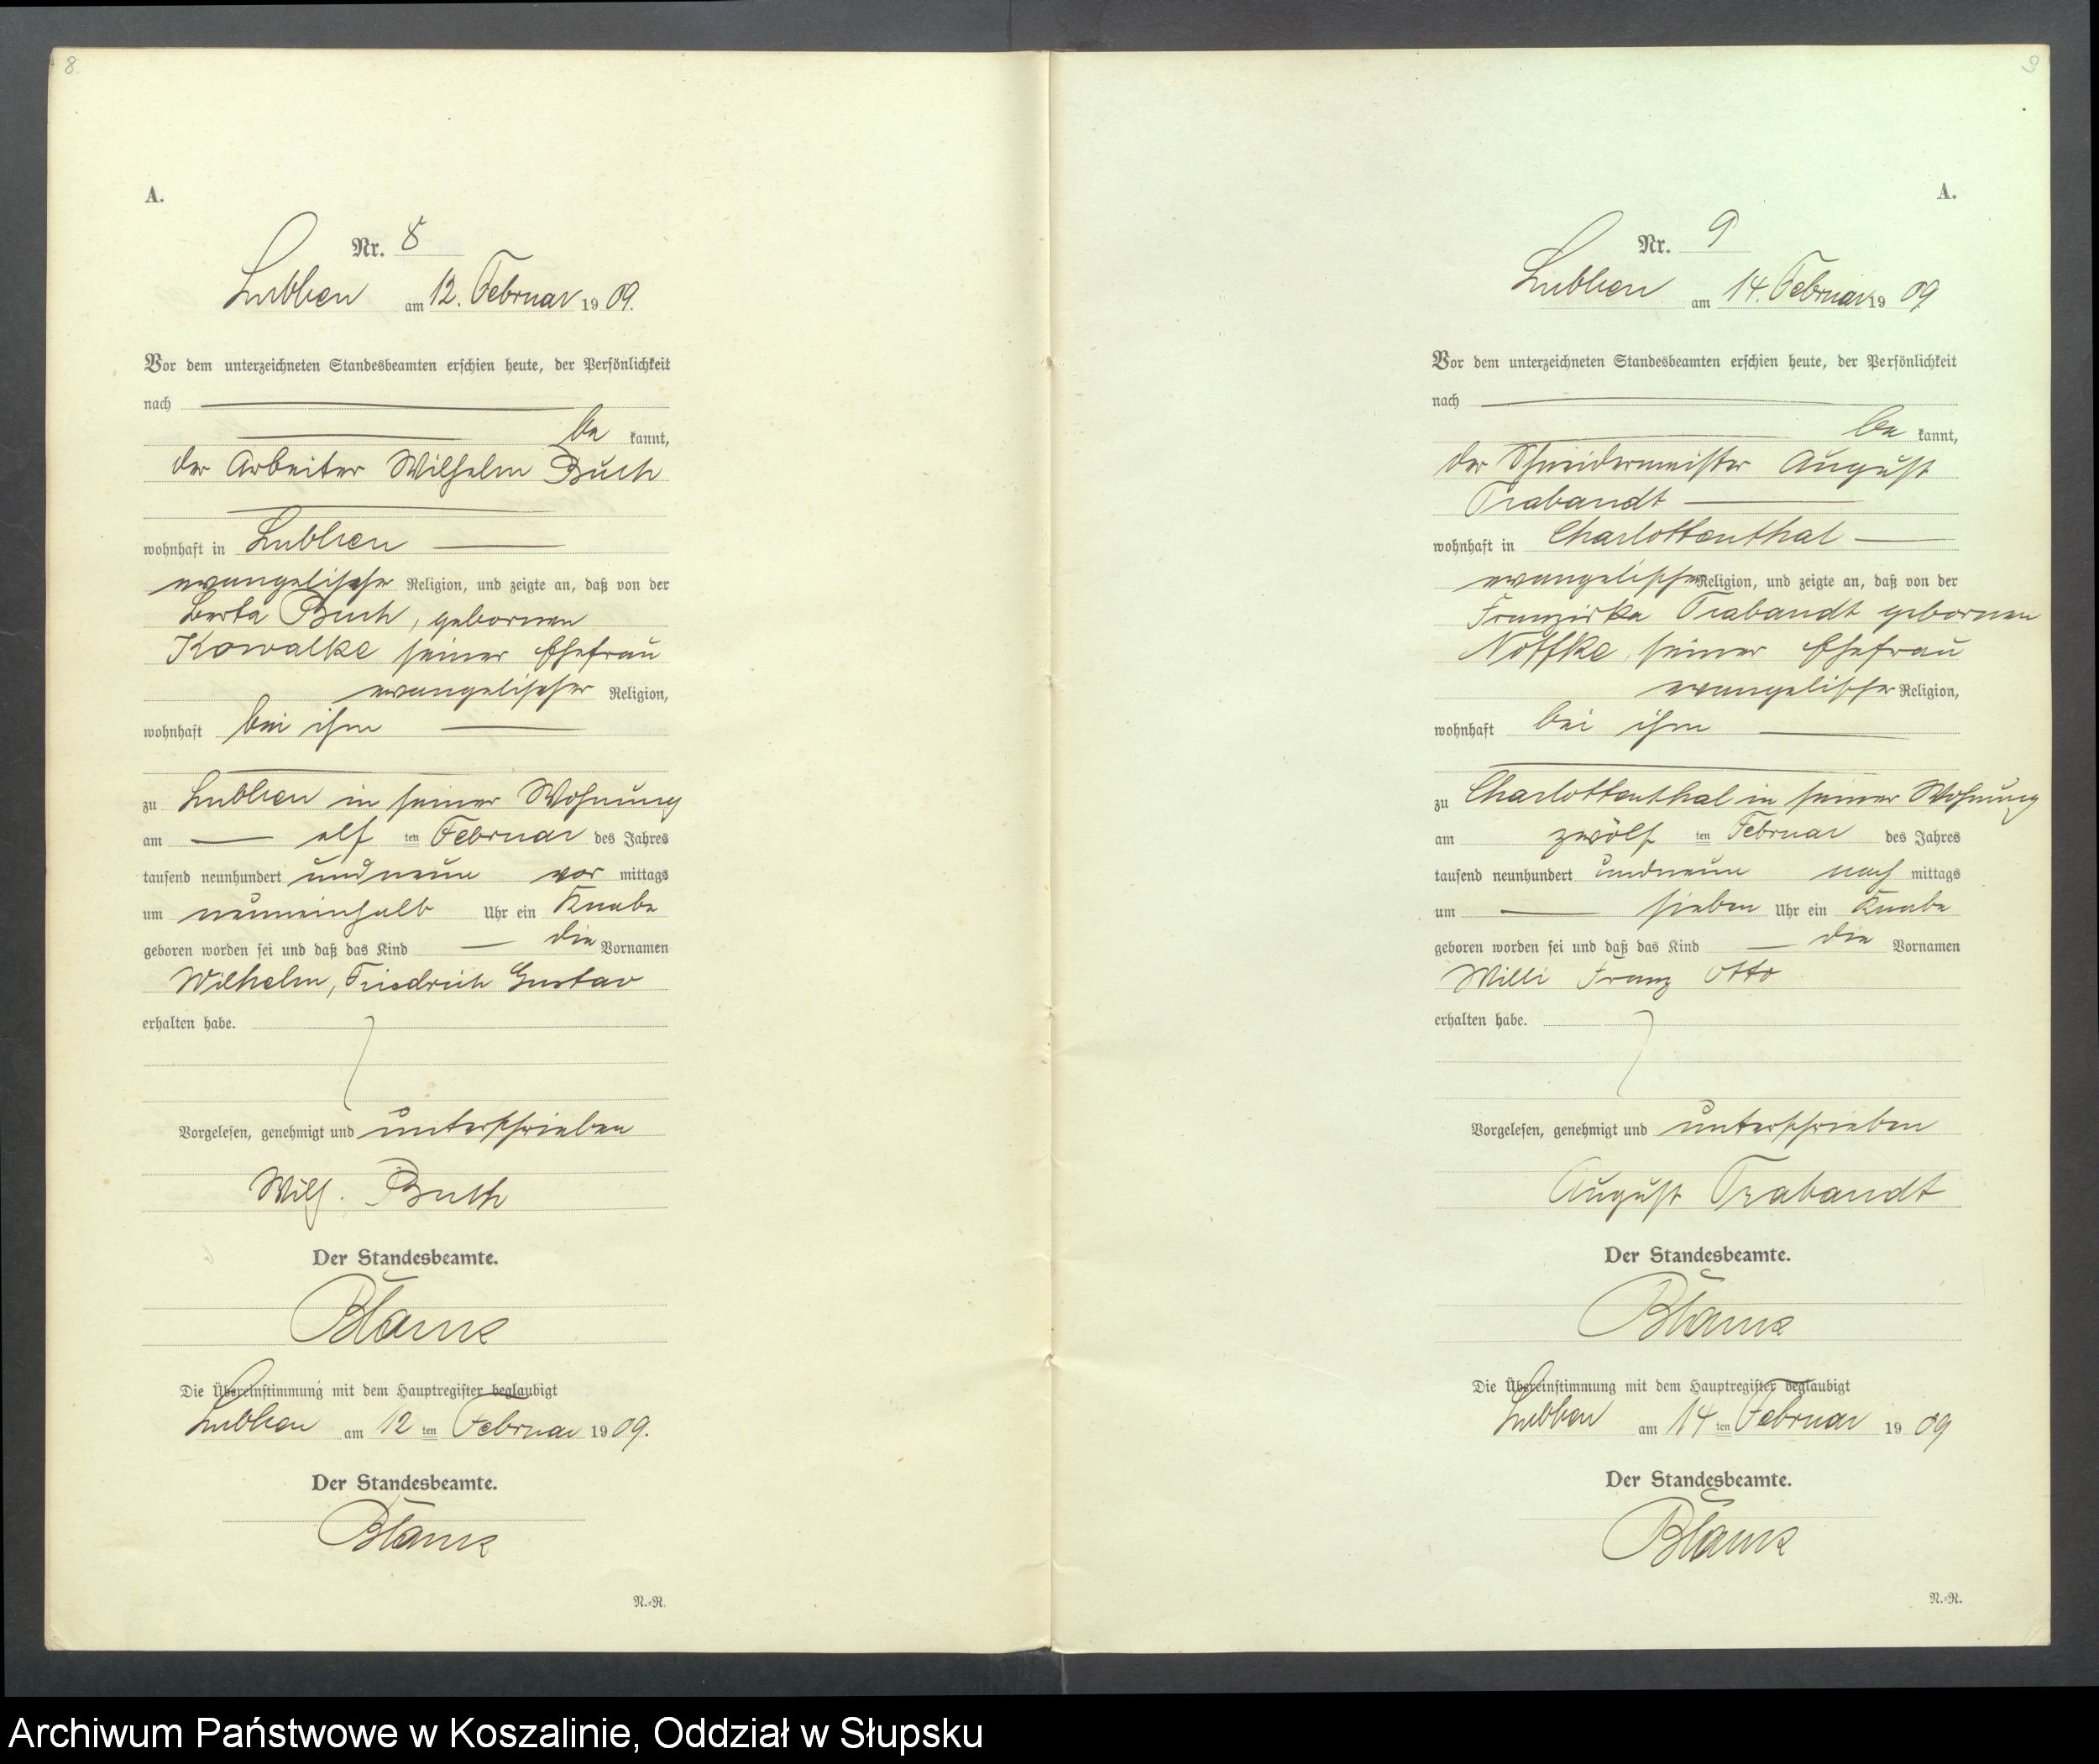 8
A.
Nr. 8
Lubben am 12. Februar 1909.
Vor dem unterzeichneten Standesbeamten erschien heute, der Persönlichkeit
nach
be kannt,
der Arbeiter Wilhelm Buth
wohnhaft in Lubben
evangelischer Religion, und zeigte an, daß von der
Berta Buth, gebornen
Kowalke seiner Ehefrau
evangelischer Religion,
wohnhaft bei ihm
zu Lubben in seiner Wohnung
am elf ten Februar des Jahres
tausend neunhundert undneun vor mittags
um neuneinhalb Uhr ein Knabe
geboren worden sei und daß das Kind die Vornamen
Wilhelm, Friedrich Gustav
erhalten habe.
Vorgelesen, genehmigt und unterschrieben
Wilh. Buth
Der Standesbeamte.
Die Übereinstimmung mit dem Hauptregister beglaubigt
Lubben am 12 ten Februar 1909.
Der Standesbeamte.
N.-R.
9
A.
Nr. 9
Lubben am 14. Februar 1909
Vor dem unterzeichneten Standesbeamten erschien heute, der Persönlichkeit
nach
be kannt,
der Schneidermeister August
Trabandt
wohnhaft in Charlottenthal
evangelischer Religion, und zeigte an, daß von der
Franziska Trabandt gebornen
Noffke, seiner Ehefrau
evangelischer Religion,
wohnhaft bei ihm
zu Charlottenthal in seiner Wohnung
am zwölf ten Februar des Jahres
tausend neunhundert undneun nach mittags
um sieben Uhr ein Knabe
geboren worden sei und daß das Kind die Vornamen
Willi Franz Otto
erhalten habe.
Vorgelesen, genehmigt und unterschrieben
August Trabandt
Der Standesbeamte.
Die Übereinstimmung mit dem Hauptregister beglaubigt
Lubben am 14 ten Februar 1909
Der Standesbeamte.
N.-R.
Archiwum Państwowe w Koszalinie, Oddział w Słupsku